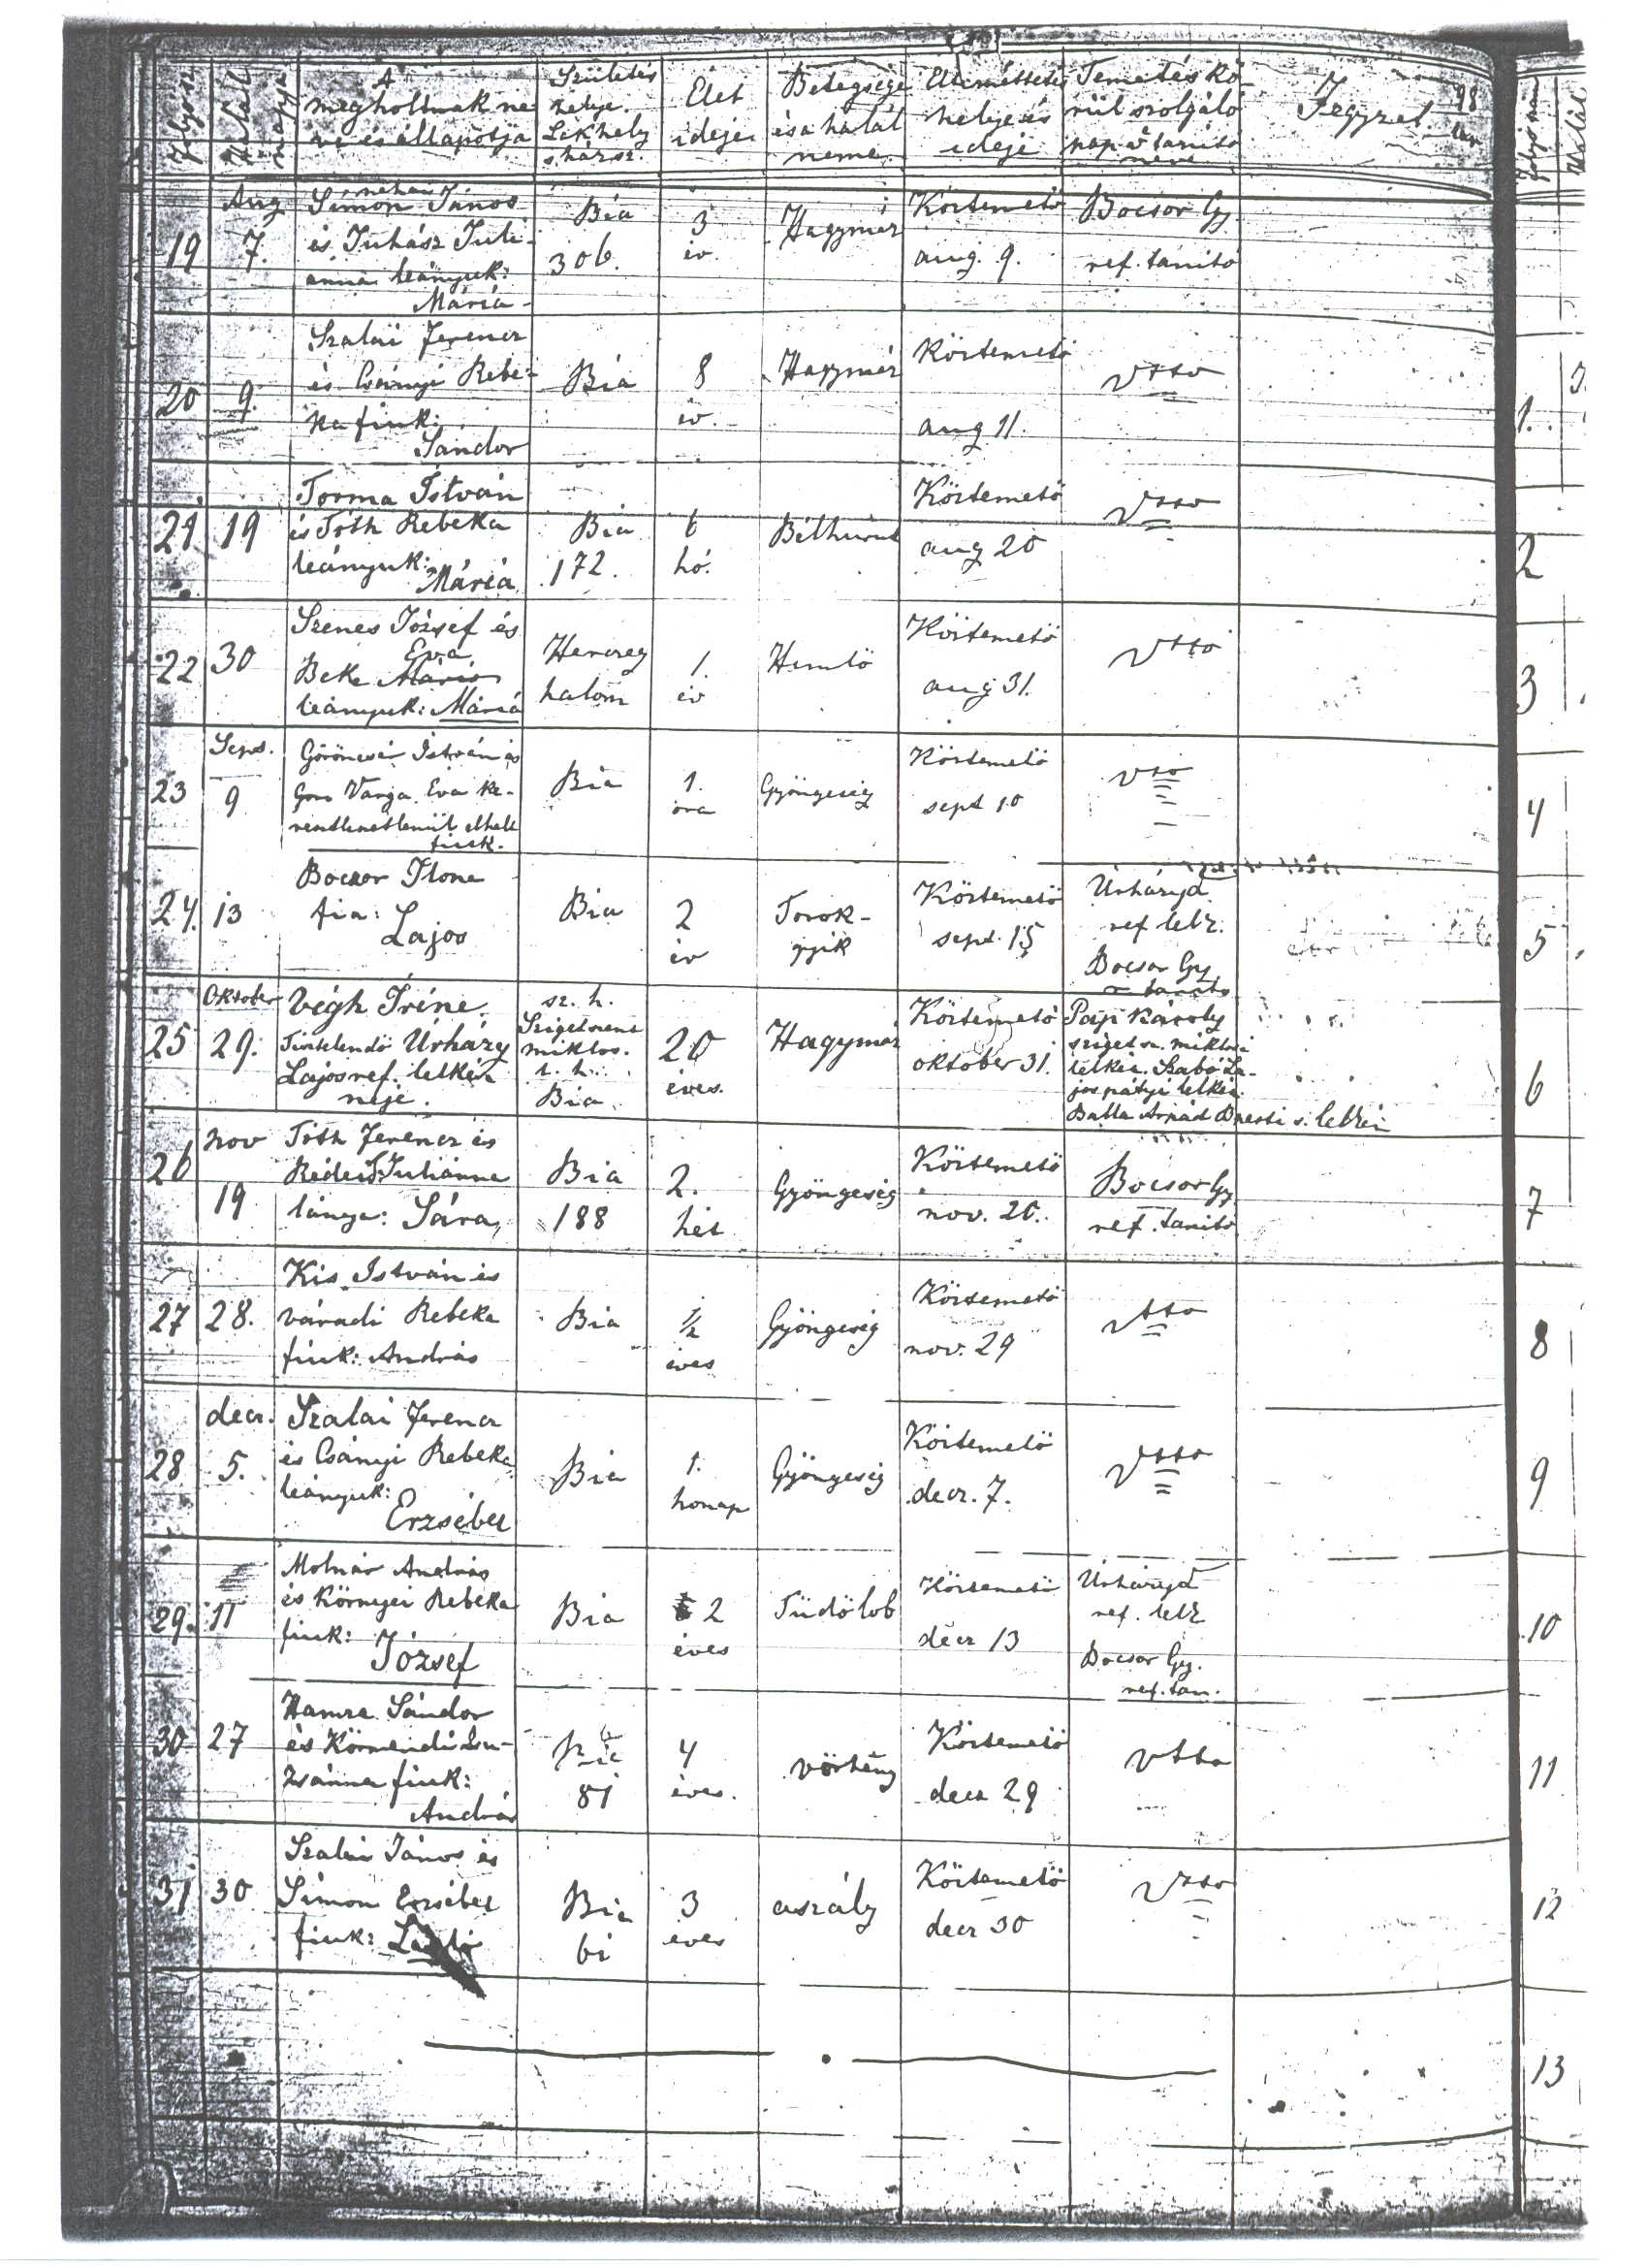 Folyó sz.
Halál
napja
A
megholtnak ne-
ve és állapotja
Születés
helye.
Lakhely
s ház sz.
Élet
ideje
Betegsége
és a halál
neme
Eltemettetés
helye és
ideje
Temetés kö-
rül szolgáló
pap v tanító
neve
Jegyzet.
98
19
Aug
7.
néhai
Simon János
és Juhász Juli-
anna leányuk:
Mária
Bia
306.
3
év.
Hagymáz
Köztemető
aug. 9.
Bocsor Gy.
ref. tanitó
20
9.
Szalai Ferencz
és Csányi Rebe-
ka fiuk:
Sándor
Bia
8
év.
Hagymáz
Köztemető
aug 11.
21
19
Torma István
és Tóth Rebeka
leányuk:
Mária
Bia
172.
6
hó.
Bélhurut
Köztemető
aug 20
22
30
Szenes József és
Éva
Beke Mária
leányuk: Mária
Herczeg
halom
1.
év
Himlő
Köztemető
aug 31.
23
Sept.
9
Göröncsér István és
Varga Éva ke-
reszteletlenül elhalt
fiuk.
Bia
1.
óra
Gyöngeség
Köztemető
sept 10
24.
13
Bocsor Ilona
fia:
Lajos
Bia
2
év
Torok-
gyik
Köztemető
sept. 15
Úrházy L
ref lelk.
Bocsor Gy.
r. tanito
25
Oktober
29.
Végh Iréne.
Tisztelendő Úrházy
Lajos ref. lelkész
neje.
sz. h.
Szigetszent
miklos.
l. h.
Bia
20
éves.
Hagymáz
Köztemető
oktober 31.
Pap Károly
sziget sz. miklósi
lelkész. Szabó La-
jos pátyi lelkész
Balla Árpád s. lelkész
26
nov
19
Tóth Ferencz és
Rédei Juliánna
lánya: Sára
Bia
188
2.
hét
Gyöngeség
Köztemető
nov. 20.
Bocsor Gy
ref. tanitó
27
28.
Kis István és
váradi Rebeka
fiuk: András
Bia
½
éves
Gyöngeség
Köztemető
nov. 29
28
decz.
5.
Szalai Ferencz
és Csányi Rebeka
leányuk:
Erzsébet
Bia
1.
honap
Gyöngeség
Köztemető
decz. 7.
29.
11
Molnár András
és Környei Rebeka
fiuk:
József
Bia
2
éves
Tüdőlob
Köztemető
decz 13
Úrházy L
ref. lelk
Bocsor Gy.
ref. tan.
30
27
Hamza Sándor
és Körmendi Zsu-
zsánna fiuk:
András
Bia
81
4
éves.
vörheny
Köztemető
decz 29
31
30
Szalai János és
Simon Erzsébet
fiuk: László
Bia
61
3
éves
aszály
Köztemető
decz 30
1.
2
3
4
5
6
7
8
9
10
11
12
13